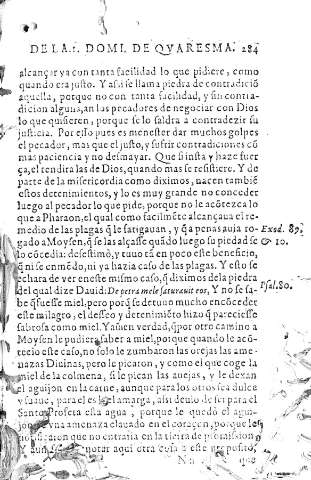 DE LA.1. DOMI. DE QVARESMA. 284
alcançar ya con tanta facilidad lo que pidiere, como
quando era justo. Y assi se llama piedra de contradició
aquella, porque no con tanta facilidad, y sin contra-
dicion alguna, an los pecadores de negociar con Dios
lo que quisieren, porque se lo saldra a contradezir su
justicia. Por esso pues es menester dar muchos golpes
el pecador, mas que el justo, y sufrir contradiciones có
mas paciencia y no desmayar. Que si insta y haze fuer
ça, el rendira las de Dios, quando mas se resistiere. Y de
parte de la misericordia como diximos, nacen tambié
estos detenimientos, y lo es muy grande no conceder
luego al pecador lo que pide, porque no le acótezca lo
que a Pharaon, el qual como facilméte alcançaua el re-
medio de las plagas q̃ le fatigauan, y q̃ a penas auia ro-
gado a Moysen, q̃ se las alçasse quádo luego su piedad se
lo cócedia: desestimò, y tuuo tá en poco este beneficio,
q̃ ni se enmédo, ni ya hazia caso de las plagas. Y esto se
echara de ver en este mismo caso, q̃ diximos de la piedra
del qual dize Dauid: De petra mele saturauit eos, Y no se sa-
be q̃ fuesse miel: pero porq̃ se detuuo mucho en cóceder
este milagro, el desseo y detenimiéto hizo q̃ pareciesse
sabrosa como miel. Y a buen verdad, q̃ por otro camino a
Moysen le pudiera saber a miel, porque quando le acó-
tecio este caso, no solo le zumbaron las orejas las ame-
nazas Diuinas, pero le picaron, y como el que coge la
miel de la colmena, si le pican las auejas, y le dexan
el aguijon en la carne, aunque para los otros sea dulce
y suaue, para el es amarga, assi deuio de ser para el
Santo Profeta esta agua, porque le quedó el agui-
jon una amenaza clauado en el coraçon, porque
notificaron que no entraria en la tierra de promission
notar aqui otra cosa a este proposito,
Exod. 89.
& 10.
Psal. 80.